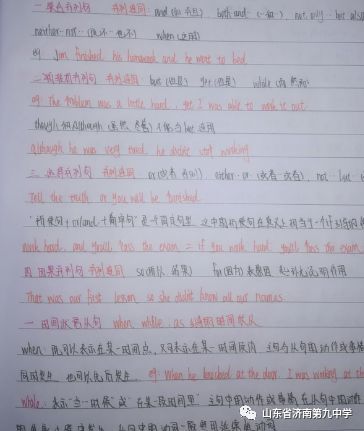 一 联合并列句 并列连词: and (和 而且) both and (…和…) not only … but also
neither nor … (既不…也不) when (这时)
例 Jim finished his homework and he went to bed.
二 转折并列句 并列连词: but (但是) yet (但是) while (而 然而)
例 The problem was a little hard, yet I was able to work it out
though 和 although (虽然 尽管) 不能与 but 连用
although he was very tired he didn't stop working
三 选择并列句 or (或者 否则) either or (或者 或者), not but
Tell the truth or you will be punished
"祈使句 + or/and + 简单句" 是一个固定句型 这中间祈使句在意义上相当于一个
work hard, and you'll pass the exam = if you work hard you'll pass the exam
四 因果并列句 并列连词 so (所以 结果) for (因为)
That was our first lesson so she didn't know all our names
一 时间状语从句 when while, as
when 既可以表示在某一时间点, 又可表示在某一时间段内
也可以先后发生 例 When he knocked at the door, I was working at the
while: 表示 "当…时候" 或 "在某一段时间里"
山东省济南第九中学